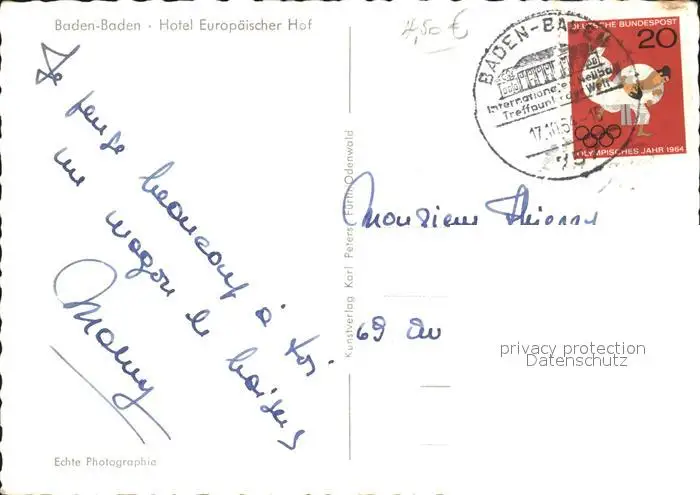 Baden-Baden · Hotel Europäischer Hof
4,50 €
BADEN-BADEN
Internationaler
Treffpunkt der Welt
17.10.64
DEUTSCHE BUNDESPOST
20
OLYMPISCHES JAHR 1964
Je pense beaucoup à toi
un wagon de baisers
Kunstverlag Karl Peters, Fürth/Odenwald
Monsieur
69
privacy protection
Datenschutz
Echte Photographie